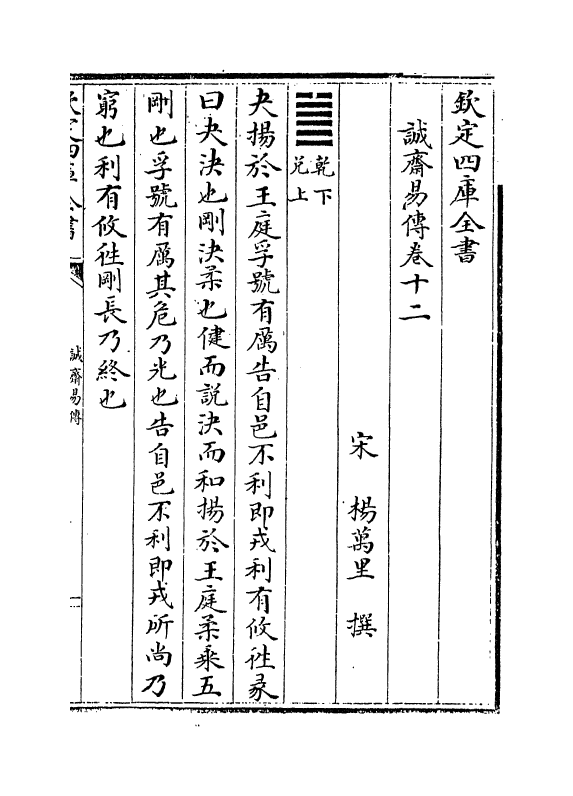 欽定四庫全書
誠齋易傳卷十二
宋 楊萬里 撰
䷪
乾下
兌上
夬揚於王庭孚號有厲告自邑不利即戎利有攸往彖
曰夬決也剛決柔也健而說決而和揚於王庭柔乘五
剛也孚號有厲其危乃光也告自邑不利即戎所尚乃
窮也利有攸往剛長乃終也
欽定四庫全書
誠齋易傳